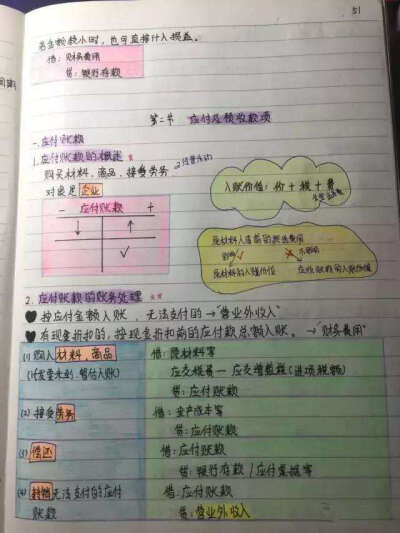 51
若金额较小时，也可直接计入损益。
借：财务费用
贷：银行存款
第二节 应付及预收款项
一、应付账款
1. 应付账款的概述
购买材料、商品、接受劳务 →经营活动
对象是企业
- 应付账款 +
入账价值：价+税+费
原材料入库前的挑选费用
影响 不影响
原材料的入账价值 应付账款的入账价值
2. 应付账款的账务处理
按应付金额入账，无法支付的→"营业外收入"
有现金折扣的，按现金折扣前的应付款总额入账。→"财务费用"
(1) 购入材料、商品 借：原材料等
应交税费—应交增值税(进项税额)
贷：应付账款
(2) 接受劳务 借：生产成本等
贷：应付账款
(3) 偿还 借：应付账款
贷：银行存款/应付票据等
(4) 转销无法支付的应付 借：应付账款
账款 贷：营业外收入